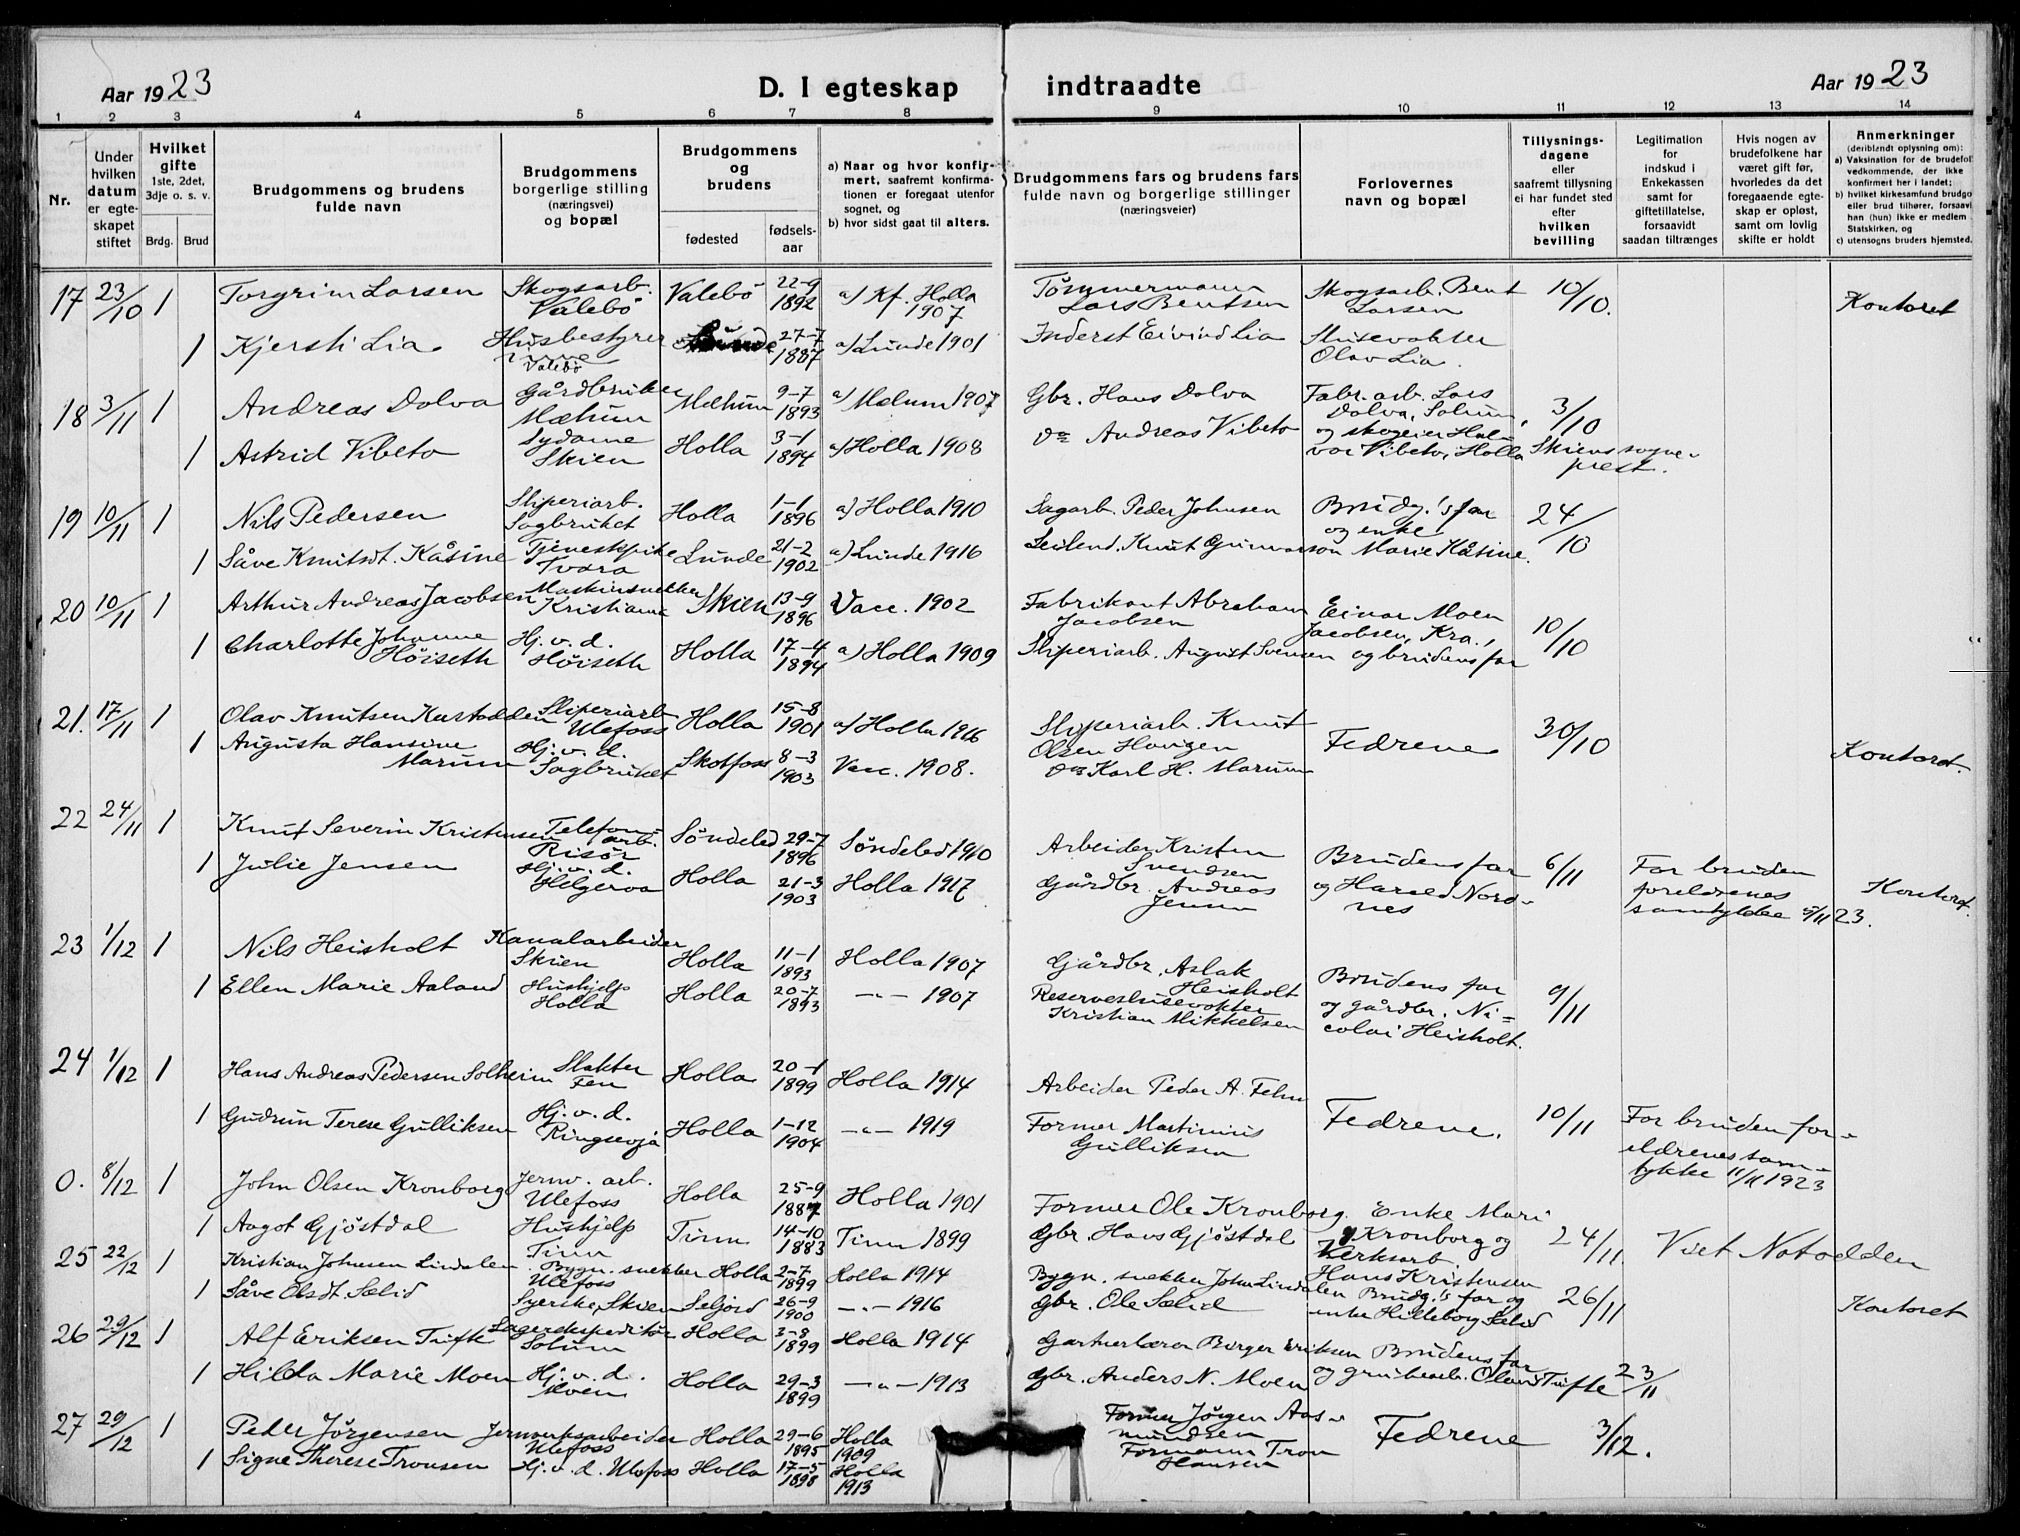 Aar 1923
D. I egteskap indtraadte
Aar 1923
1 2 3 4 5 6 7 8 9 10 11 12 13 14
Nr.
Under hvilken datum er egteskapet stiftet
Hvilket gifte
1ste, 2det, 3dje o. s. v.
Brdg. Brud
Brudgommens og brudens fulde navn
Brudgommens og brudens borgerlige stilling (næringsvei) og bopæl
Brudgommens og brudens
fødested fødsels-aar
a) Naar og hvor konfirmert, saafremt konfirmationen er foregaat utenfor sognet, og
b) hvor sidst gaat til alters.
Brudgommens fars og brudens fars fulde navn og borgerlige stillinger (næringsveier)
Forlovernes navn og bopæl
Tillysningsdagene eller saafremt tillysning ei har fundet sted efter hvilken bevilling
Legitimation for indskud i Enkekassen samt for giftetillatelse, forsaavidt saadan tiltrænges
Hvis nogen av brudefolkene har været gift før, hvorledes da det foregaaende egteskap er opløst, samt om lovlig skifte er holdt
Anmerkninger
(deriblandt oplysning om):
a) Vaksination for de brudefol vedkommende, der ikke konfirmert her i landet;
b) hvilket kirkesamfund brudgo eller brud tilhører, forsaavi han (hun) ikke er medlem Statskirken, og
c) utensogns bruders hjemsted.
17 23/10 1 Torgrim Larsen Skogsarb. Valebö Valebö 22-9 1892 a) Kf. Holla 1907 Tömmermann Lars Bentsen Skogsarb. Bent Larsen 10/10. Kontoret
1 Kjersti Lia Husbestyrer Valebö Lunde 27-7 1887 a) Lunde 1901 Inderst Eivind Lia Slusevokter Olav Lia.
18 3/11 1 Andreas Dolva Gårdbruker Mælum Mælum 9-7 1893 a) Mælum 1907 Gbr. Hans Dolva Fabr. arb. Lars Dolva, Solum, 3/10
1 Astrid Vibeto Sydame Skien Holla 3-1 1894 a) Holla 1908 do Andreas Vibeto og skogeier Halvor Vibeto, Holla Skiens sogneprest.
19 10/11 1 Nils Pedersen Sliperiarb. Sagbruket Holla 1-1 1896 a) Holla 1910 Sagarb. Peder Johnsen Brudg.'s far og enke 24/10
1 Såve Knutsdt. Kåsine Tjenestepike Tvara Lunde 21-2 1902 a) Lunde 1916 Leilend. Knut Gunnarson Marie Kåsine.
20 10/11 1 Arthur Andreas Jacobsen Maskinsnekker Kristiania Skien 13-9 1896 Vacc. 1902 Fabrikant Abraham Jacobsen Einar Moen Jacobsen, Kra., 10/10
1 Charlotte Johanne Höiseth Hj. v. d. Höiseth Holla 17-4 1894 a) Holla 1909 Sliperiarb. August Svensen og brudens far
21. 17/11 1 Olav Knutsen Kastodden Sliperiarb Ulefoss Holla 15-8 1901 a) Holla 1916 Sliperiarb. Knut Olsen Haugen Fedrene 30/10 Kontoret.
1 Augusta Hansine Marum Hj. v. d. Sagbruket Skotfoss 8-3 1903 Vacc. 1908. do Karl H. Marum
22 24/11 1 Knut Severin Kristensen Telefonarb. Risör Söndeled 29-7 1896 Söndeled 1910 Arbeider Kristen Svendsen Brudens far 6/11 For bruden
1 Julie Jensen Hj. v. d. Helgerva Holla 21-3 1903 Holla 1917 Gårdbr. Andreas Jensen og Harald Nordnes foreldrenes samtykke 5/11 23. Kontoret.
23 1/12 1 Nils Heisholt Kanalarbeider Skien Holla 11-1 1893 Holla 1907 Gårdbr. Aslak Heisholt Brudens far 9/11
1 Ellen Marie Aaland Hushjelp Holla Holla 20-7 1893 -"- 1907 Reserveslusevokter Kristian Mikkelsen og gårdbr. Nicolai Heisholt.
24 1/12 1 Hans Andreas Pedersen Solheim Slakter Fen Holla 20-1 1899 Holla 1914 Arbeider Peder A. Fehn Fedrene. 10/11
1 Gudrun Terese Gulliksen Hj. v. d. Ringsevja Holla 1-12 1904 -"- 1919 Former Martinius Gulliksen For bruden foreldrenes samtykke 11/11 1923
0. 8/12 1 John Olsen Kronborg Jernv. arb. Ulefoss Holla 25-9 1887 Holla 1901 Former Ole Kronborg. Enke Mari Kronborg og 24/11. Viet Notodden
1 Aagot Gjöstdal Hushjelp Tinn Tinn 14-10 1883 Tinn 1899 Gbr. Hans Gjöstdal Verksarb. Hans Kristensen
25 22/12 1 Kristian Johnsen Lindalen Bygn. snekker Ulefoss Holla 2-7 1899 Holla 1914 Bygn. snekker John Lindalen Brudg.'s far og 26/11
1 Såve Olsdt. Sælid Syerske, Skien Seljord 26-9 1900 -"- 1916 Gbr. Ole Sælid enke Hilleborg Sælid Kontoret
26 29/12 1 Alf Eriksen Tufte Lagerekspeditör Solum Holla 3-8 1899 Holla 1914 Gartnerlærer Birger Eriksen Brudens far 23/11
1 Hilda Marie Moen Hj. v. d. Moen Holla 29-3 1899 -"- 1913 Gbr. Anders N. Moen og grubearb. Olav Tufte
27 29/12 1 Peder Jörgensen Jernverksarbeider Ulefoss Holla 29-6 1895 Holla 1909 Former Jörgen Aasmundsen Fedrene 3/12.
1 Signe Therese Tronsen Hj. v. d. Ulefoss Holla 17-5 1898 Holla 1913 Formann Tron Hansen